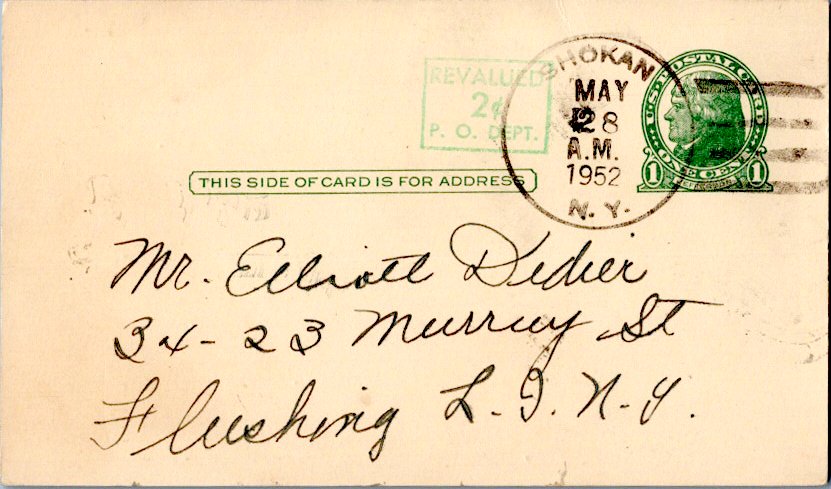 REVALUED
2¢
P. O. DEPT.
SHOKAN
MAY
28
A.M.
1952
N. Y.
U.S. POSTAL CARD
ONE CENT
1 JEFFERSON 1
THIS SIDE OF CARD IS FOR ADDRESS
Mr. Elliott Didier
34-23 Murray St
Flushing L. I. N. Y.